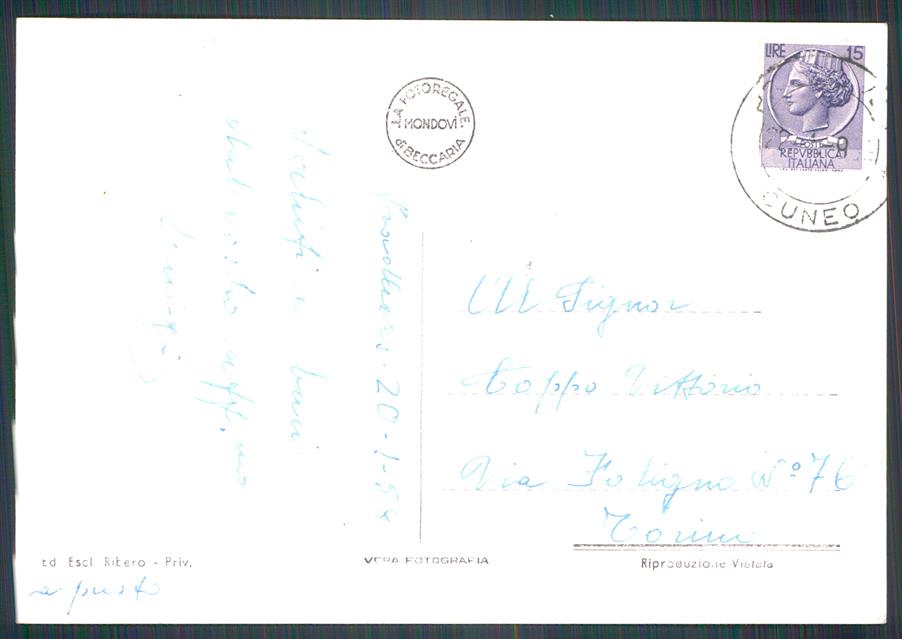 LA FOTOREGALE
MONDOVÌ
di BECCARIA
LIRE 15
POSTE
REPVBBLICA
ITALIANA
CUNEO
20-1-5
Saluti e baci
dal vostro aff.mo
Luigi
Al Signor
Coppo Vittorio
Via Foligno N° 76
Torino
Ed Escl Ribero - Priv.
VERA FOTOGRAFIA
Riproduzione Vietata
a presto